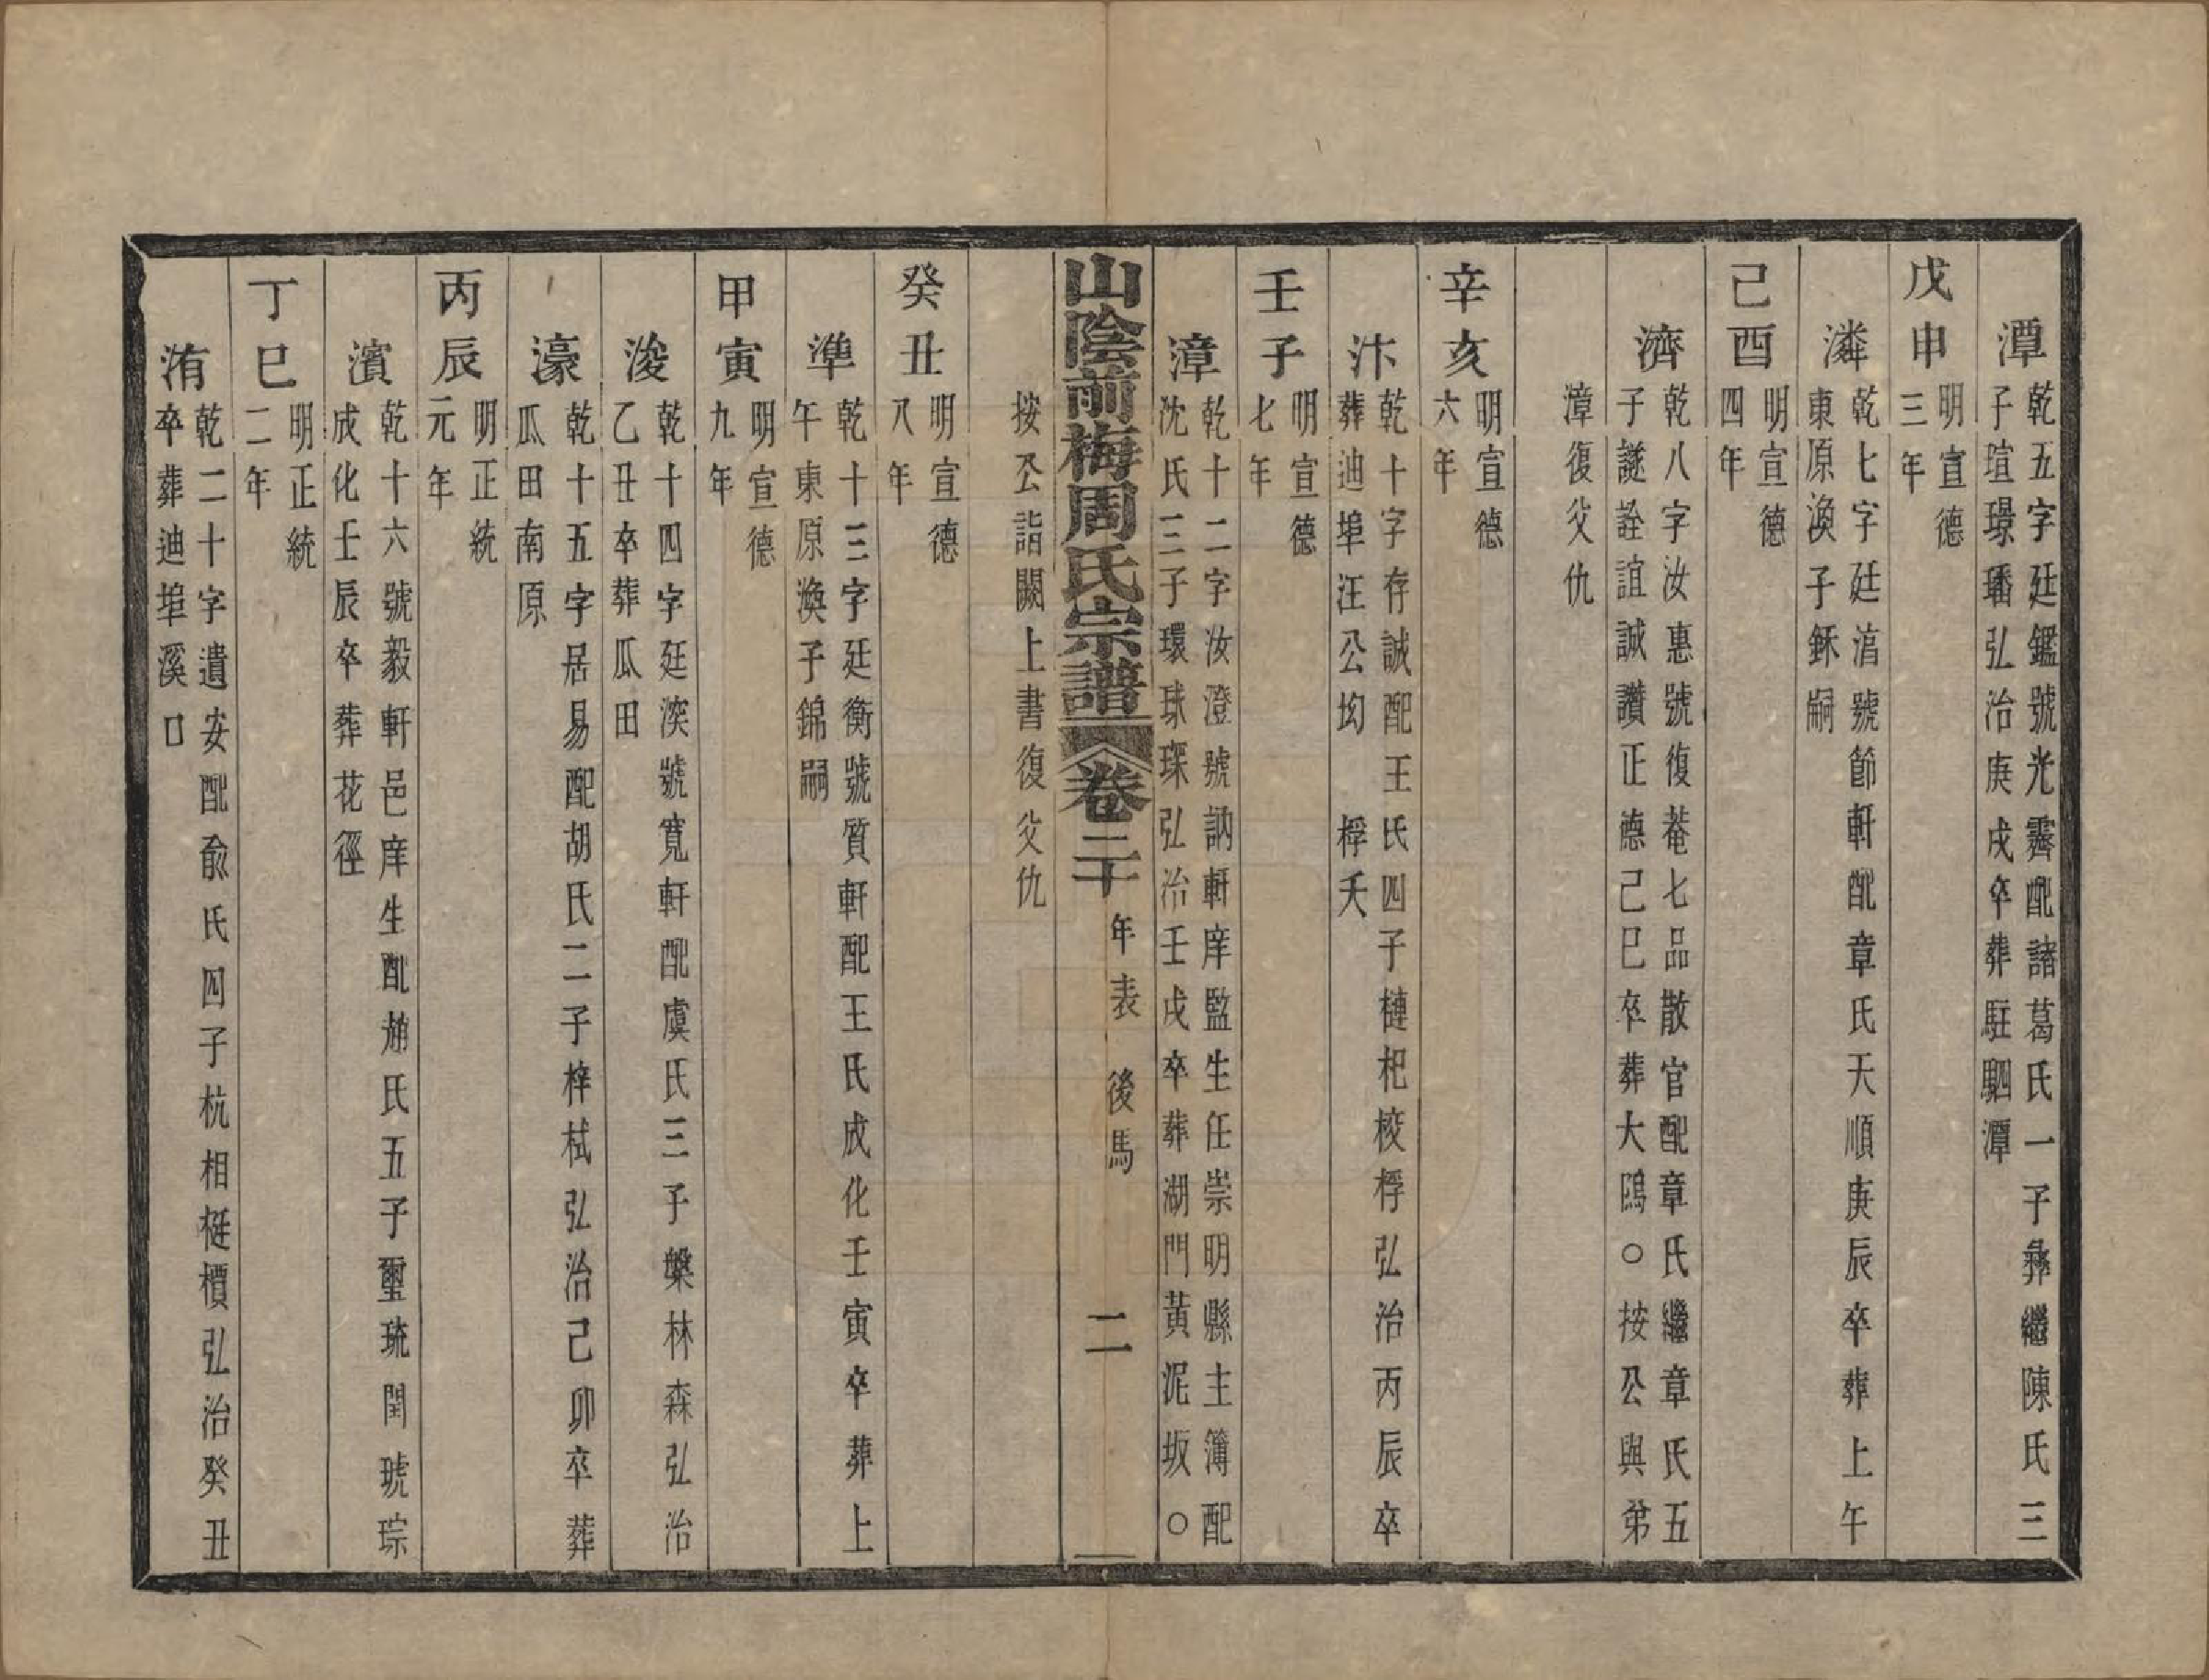 潭
乾五字廷鑑號光霽配諸葛氏一子彞繼陳氏三
子瑄璟璠弘治庚戌卒葬駐駟潭
戊申
明宣德
三年
潾
乾七字廷淯號節軒配章氏天順庚辰卒葬上午
東原渙子鉌嗣
己酉
明宣德
四年
濟
乾八字汝惠號復菴七品散官配章氏繼章氏五
子謎詮誼誠讚正德己巳卒葬大隖○按公與弟
漳復父仇
辛亥
明宣德
六年
汴
乾十字存誠配王氏四子槤杞棭桴弘治丙辰卒
葬迪埠汪公㘭 桴夭
壬子
明宣德
七年
漳
乾十二字汝澄號訥軒庠監生任崇明縣主簿配
沈氏三子環球琛弘治壬戌卒葬湖門黃泥坂○
山陰前梅周氏宗譜
卷二十 年表 後馬 二
按公詣闕上書復父仇
癸丑
明宣德
八年
準
乾十三字廷衡號質軒配王氏成化壬寅卒葬上
午東原渙子錦嗣
甲寅
明宣德
九年
浚
乾十四字廷㴒號寬軒配虞氏三子槃林森弘治
乙丑卒葬瓜田
濠
乾十五字居易配胡氏二子梓栻弘治己卯卒葬
瓜田南原
丙辰
明正統
元年
濱
乾十六號毅軒邑庠生配趙氏五子璽珫閏琥琮
成化壬辰卒葬花徑
丁巳
明正統
二年
洧
乾二十字遺安配俞氏四子杭相梃檟弘治癸丑
卒葬迪埠溪口